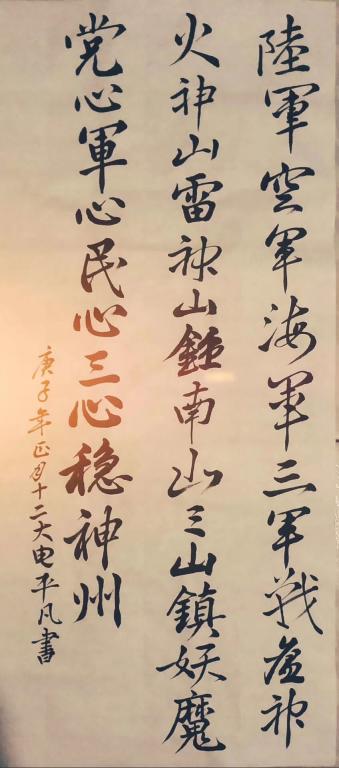 陸軍空軍海軍三軍戰瘟神
火神山雷神山鍾南山三山鎮妖魔
党心軍心民心三心稳神州
庚子年正月十二大电平凡書